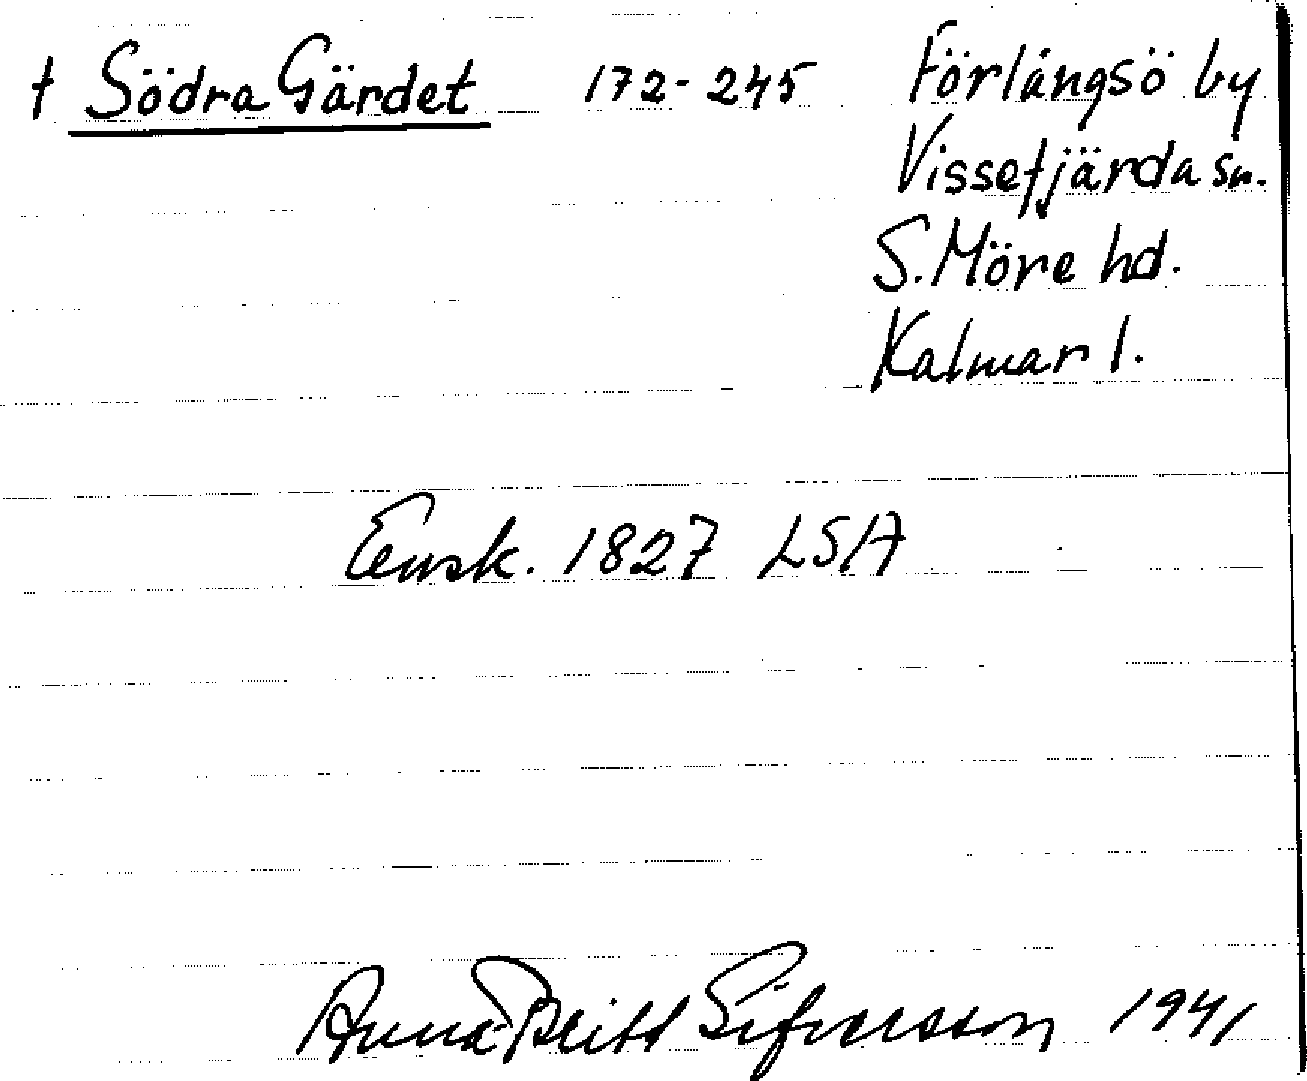 † Södra Gärdet 172-245 Förlångsö by
Vissefjärda sn.
S. Möre hd.
Kalmar l.
Ensk. 1827 LSA
Anna-Britt Sifvarsson 1941